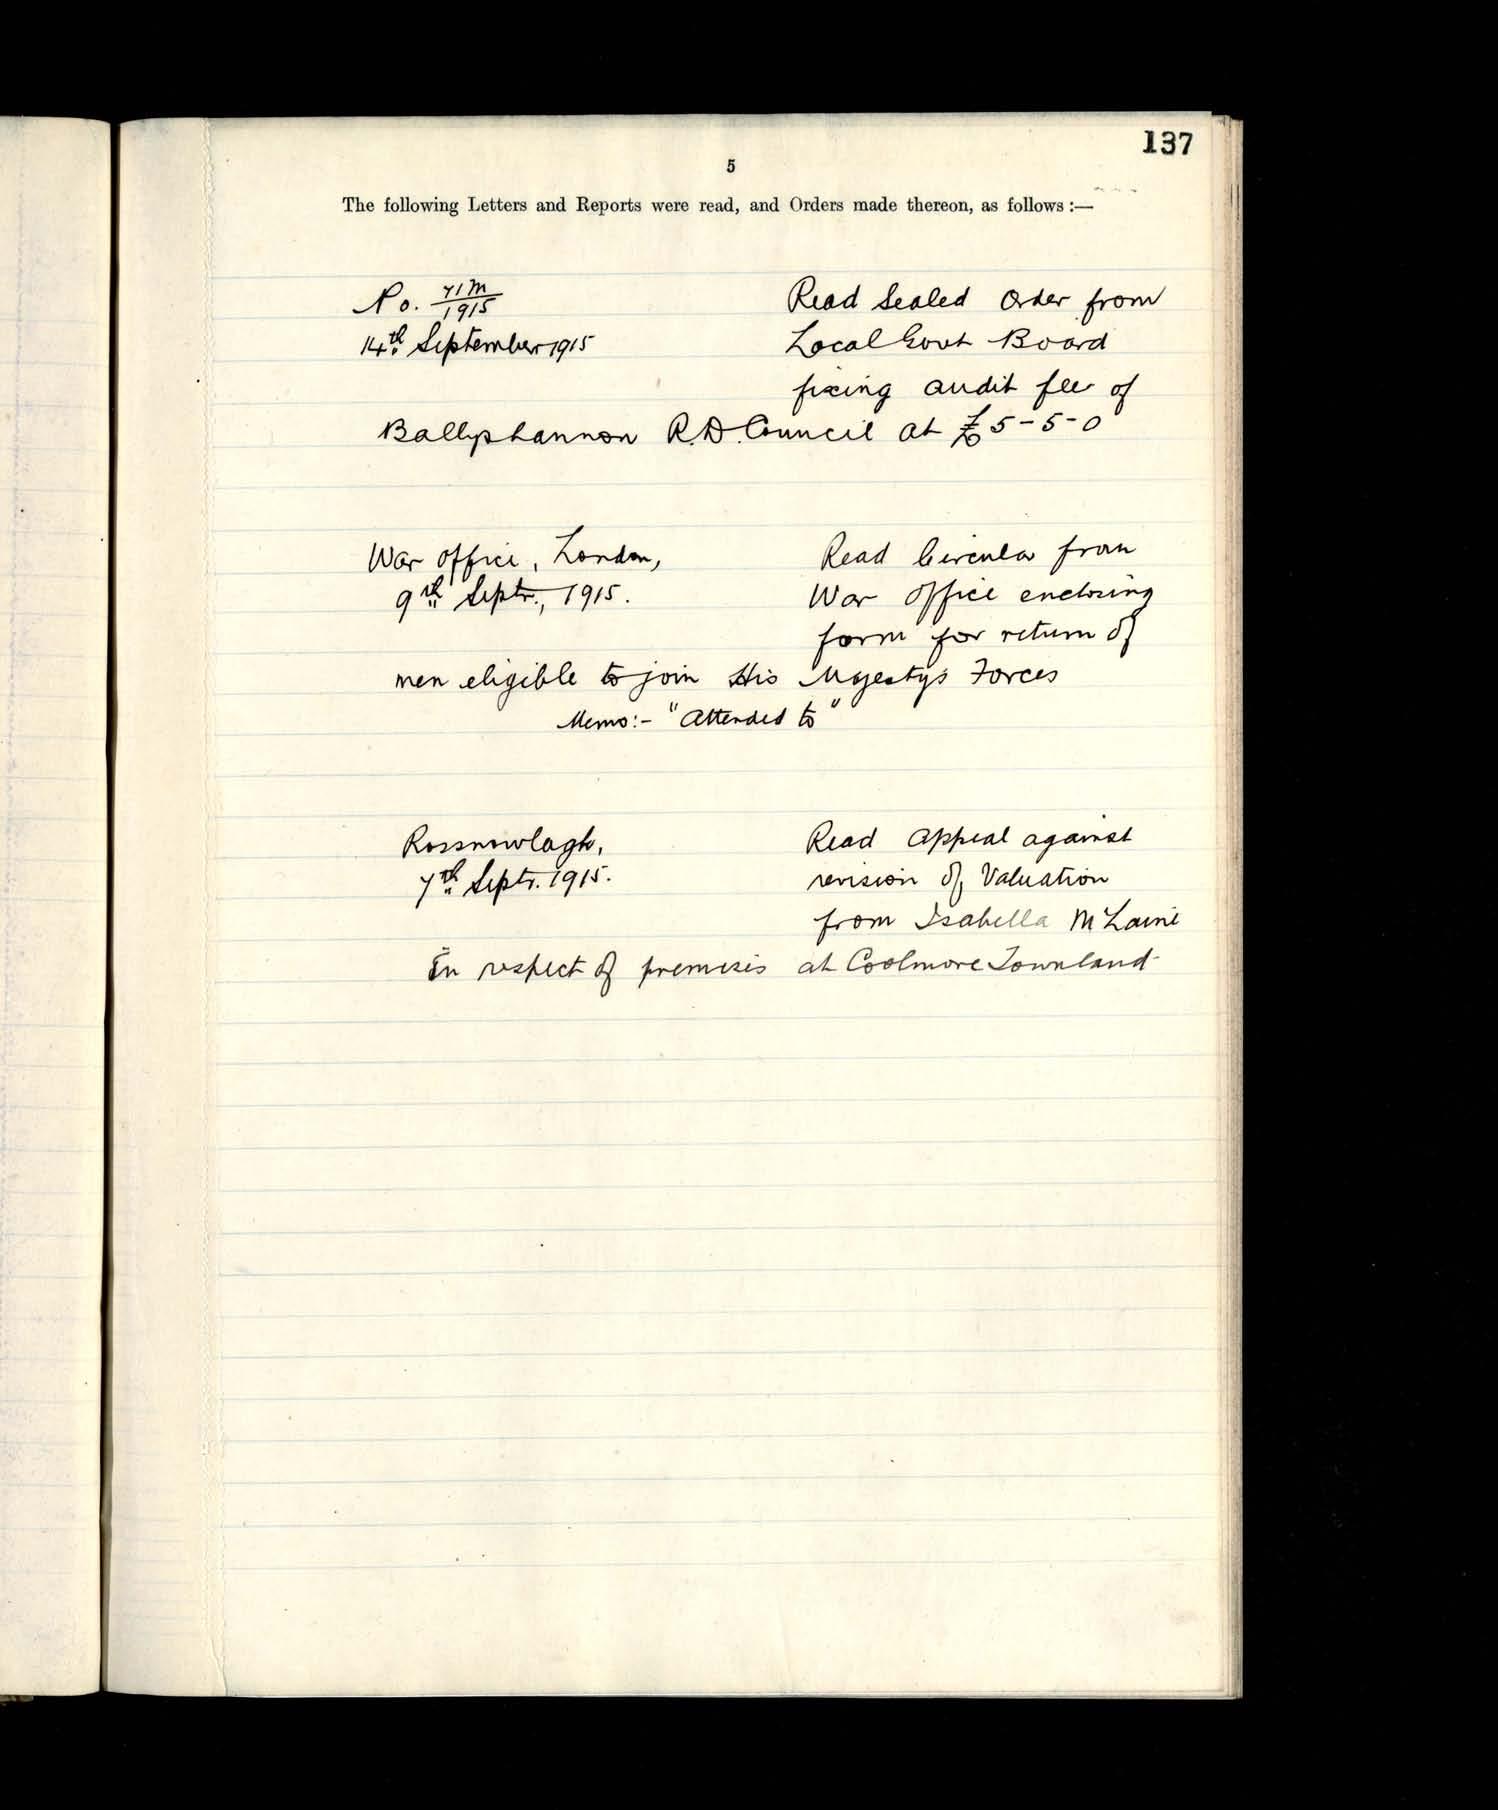 137
5
The following Letters and Reports were read, and Orders made thereon, as follows :—
No. 71M/1915
14th September 1915
Read Sealed Order from
Local Govt Board
fixing audit fee of
Ballyshannon R.D. Council at £5-5-0
War Office, London,
9th Septr., 1915.
Read Circular from
War Office enclosing
form for return of
men eligible to join His Majesty's Forces
Memo:- "Attended to"
Rossnowlagh,
7th Septr. 1915.
Read Appeal against
revision of Valuation
from Isabella McLaine
In respect of premises at Coolmore Townland